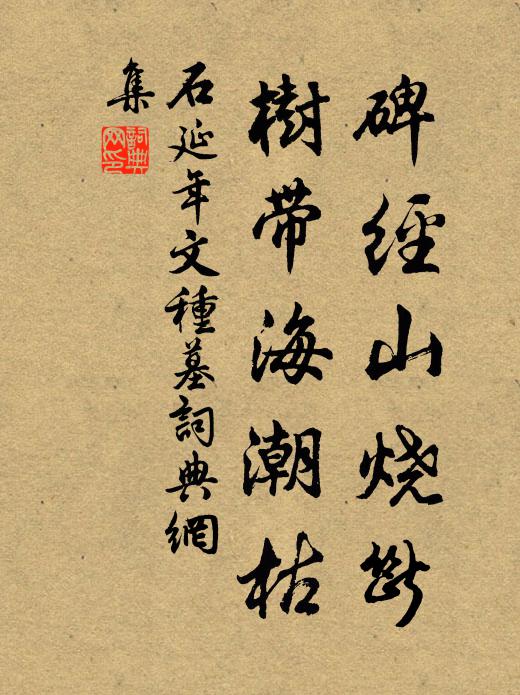 碑經山烧断
樹帶海潮枯
石延年文種墓詞典網
集
詞典
网印